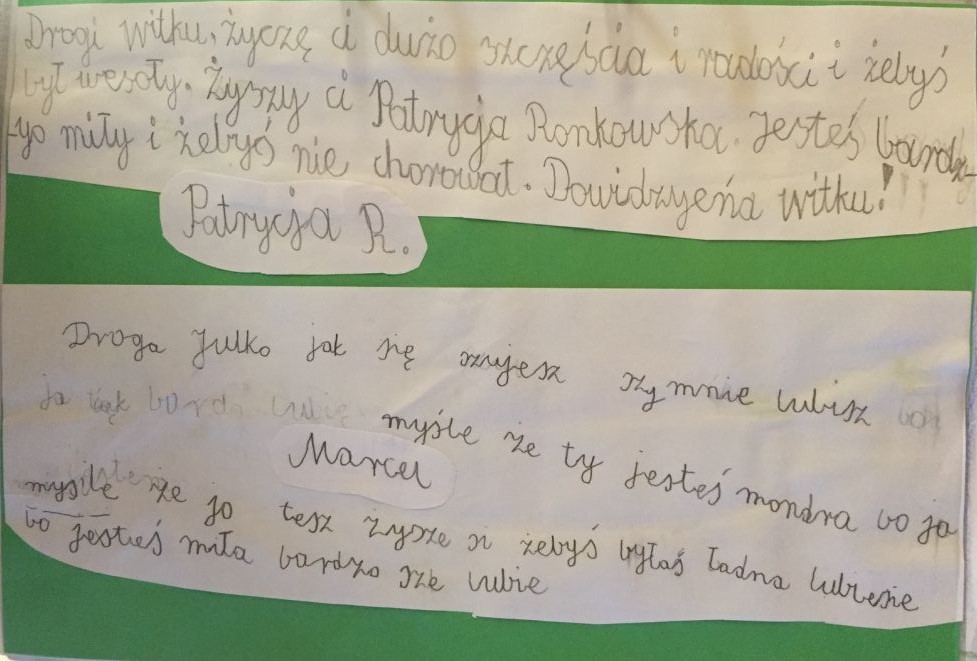 Drogi witku, życzę ci dużo szczęścia i radości i żebyś
był wesoły. Żyszy ci Patrycja Ronkowska. Jesteś bardz-
-yo miły i żebyś nie chorował. Dowidzyeńa witku!
Patrycja R.
Droga Julko jak się szujesz szy mnie lubisz
ja bardo lubię myśle że ty jesteś mondra bo ja
Marcel
mysile że jo tesz żysze si żebyś byłaś ładna lubiesie
bo jesteś miła bardzo sze lubie